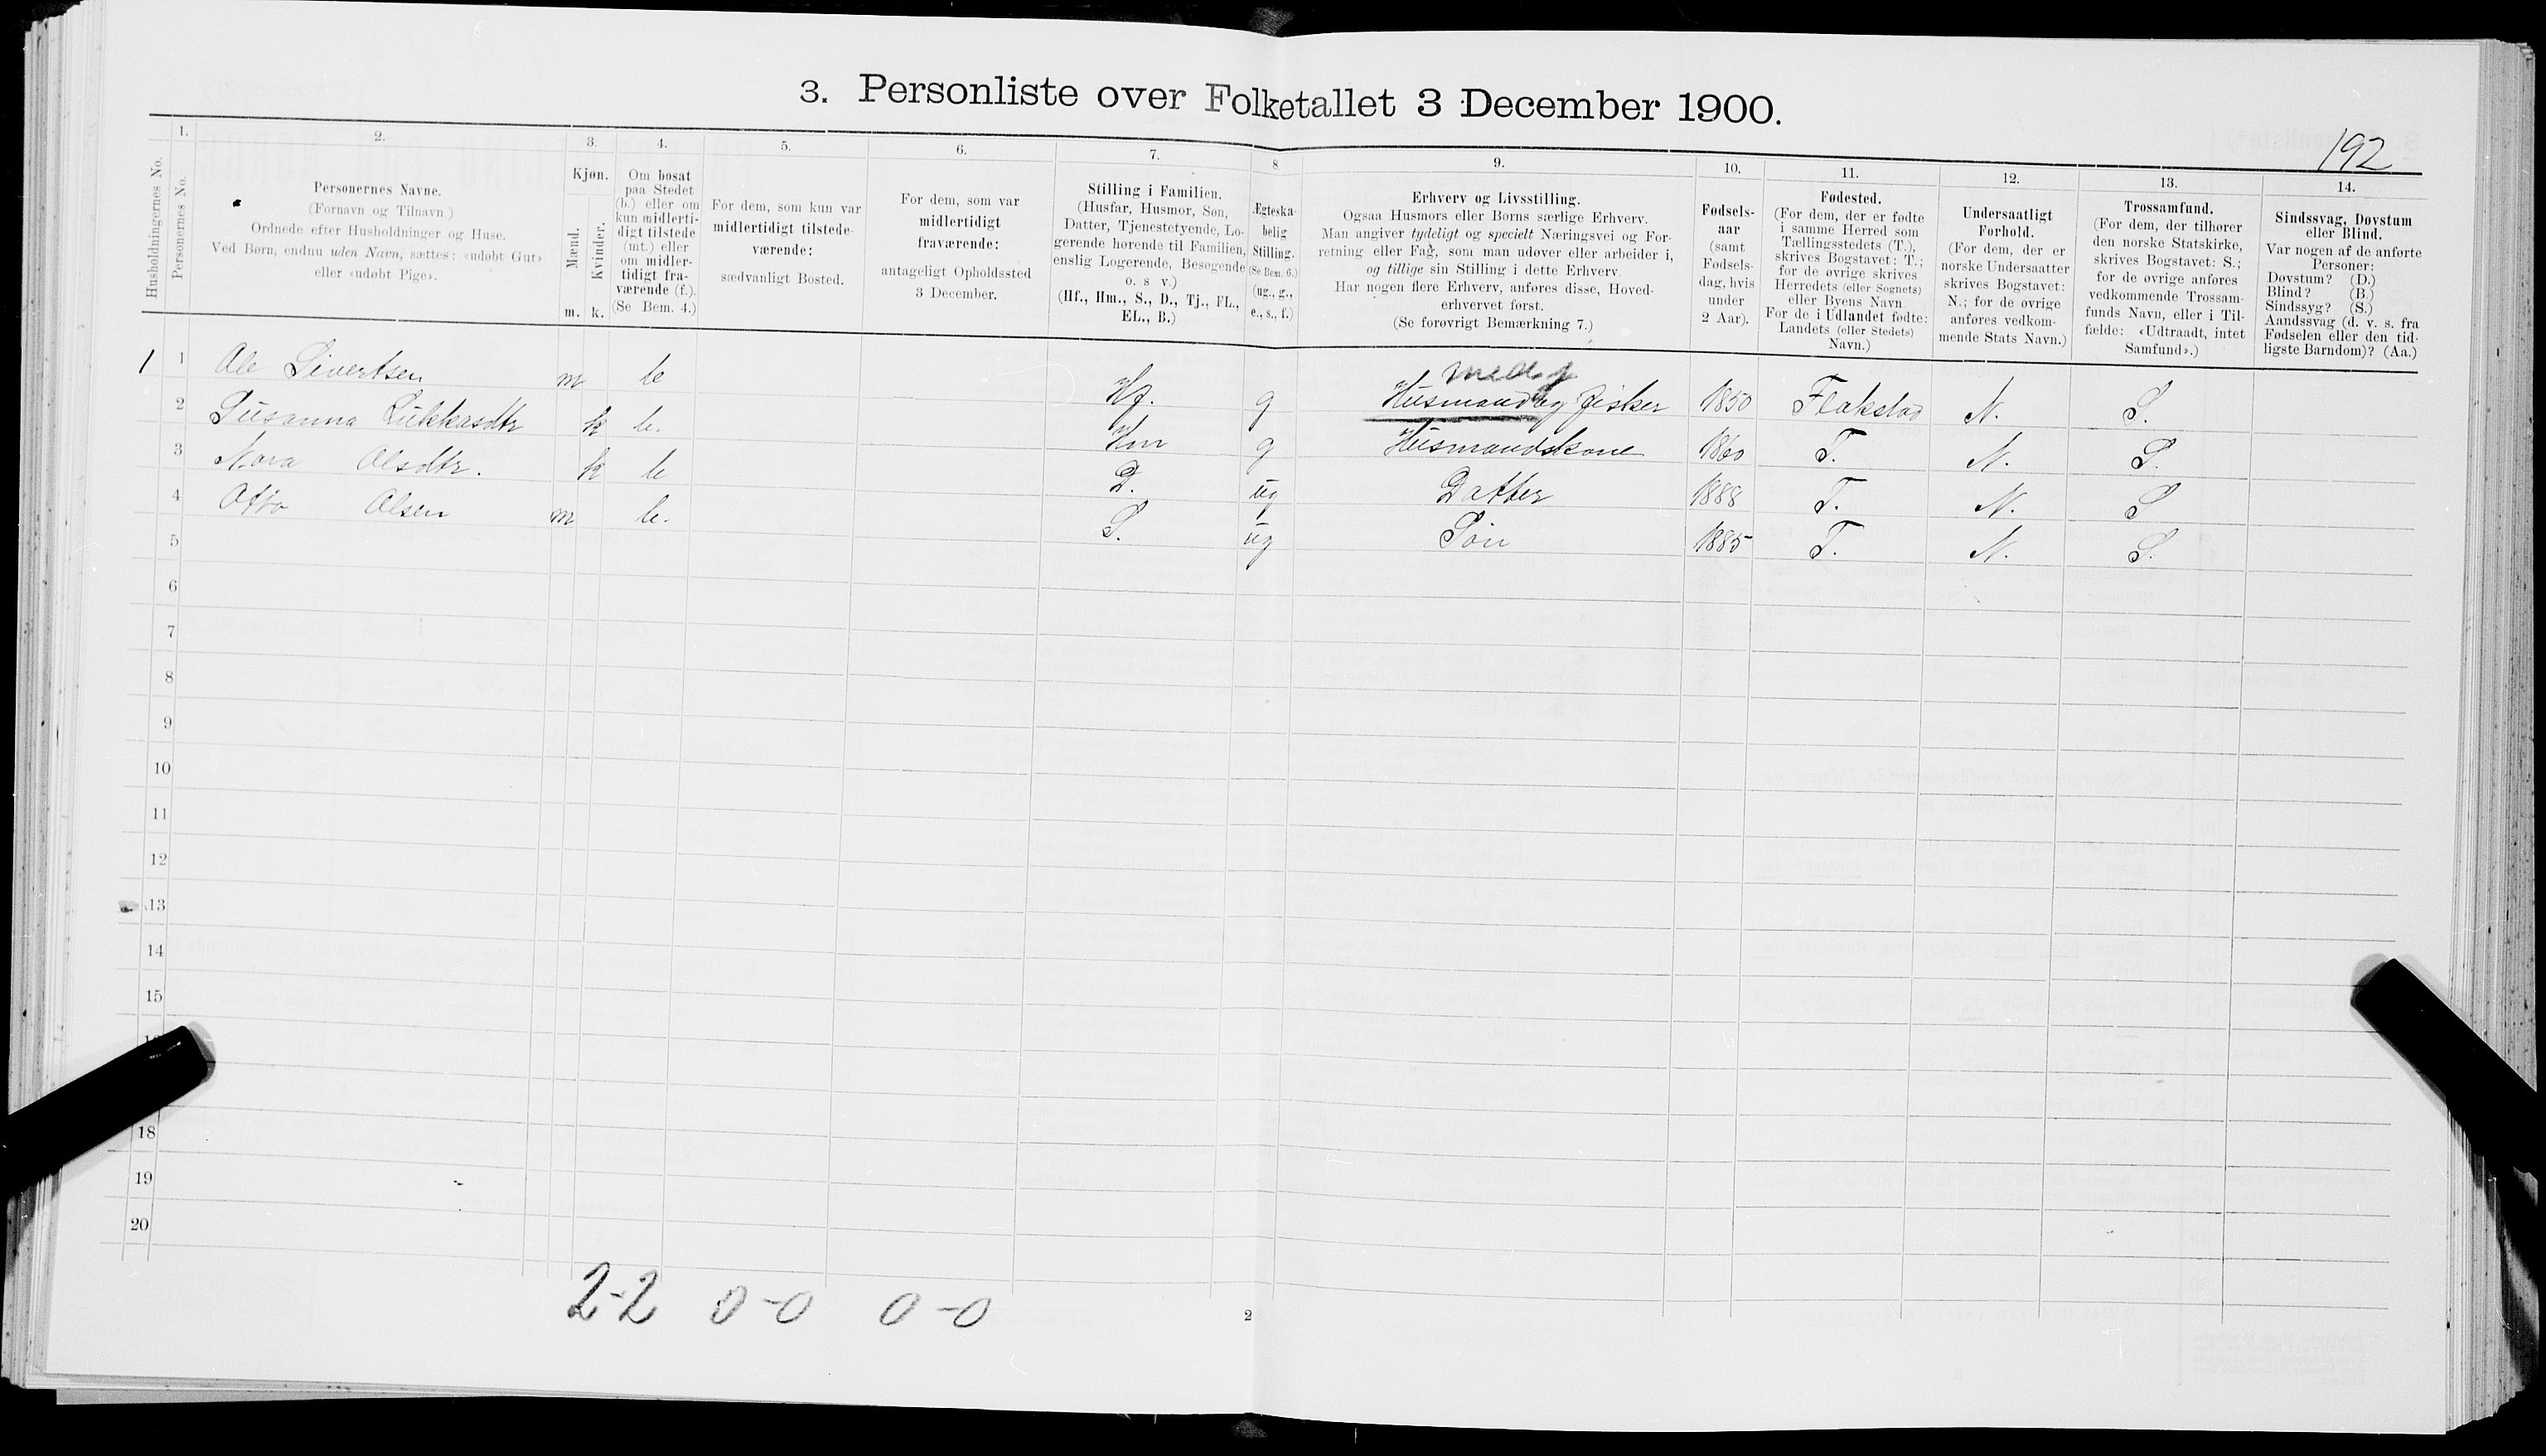 3. Personliste over Folketallet 3 December 1900.
192
Husholdningernes No.
1.
Personernes No.
2.
Personernes Navne.
(Fornavn og Tilnavn)
Ordnede efter Husholdninger og Huse.
Ved Børn, endnu uden Navn, sættes: «udøbt Gut»
eller «udøbt Pige».
3.
Kjøn.
Mænd.
Kvinder.
m. k.
4.
Om bosat
paa Stedet
(b.) eller om
kun midlerti-
digt tilstede
(mt.) eller
om midler-
tidigt fra-
værende (f.).
(Se Bem. 4.)
5.
For dem, som kun var
midlertidigt tilstede-
værende:
sædvanligt Bosted.
6.
For dem, som var
midlertidigt
fraværende:
antageligt Opholdssted
3 December.
7.
Stilling i Familien.
(Husfar, Husmor, Søn,
Datter, Tjenestetyende, Lo-
gerende hørende til Familien,
enslig Logerende, Besøgende
o. s v.)
(Hf., Hm., S., D., Tj., FL.,
EL., B.)
8
Ægteska-
belig
Stilling.
(Se Bem. 6.)
(ug., g.,
e., s., f.)
9.
Erhverv og Livsstilling.
Ogsaa Husmors eller Børns særlige Erhverv.
Man angiver tydeligt og specielt Næringsvei og For-
retning eller Fag, som man udøver eller arbeider i,
og tillige sin Stilling i dette Erhverv.
Har nogen flere Erhverv, anføres disse, Hoved-
erhvervet først.
(Se forøvrigt Bemærkning 7.)
10.
Fødsels-
aar
(samt
Fødsels-
dag, hvis
under
2 Aar).
11.
Fødested.
(For dem, der er fødte
i samme Herred som
Tællingsstedets (T.),
skrives Bogstavet: T.;
for de øvrige skrives
Herredets (eller Sognets)
eller Byens Navn.
For de i Udlandet fødte:
Landets (eller Stedets)
Navn.)
12.
Undersaatligt
Forhold.
(For dem, der er
norske Undersaatter
skrives Bogstavet:
N.; for de øvrige
anføres vedkom-
mende Stats Navn.)
13.
Trossamfund.
(For dem, der tilhører
den norske Statskirke,
skrives Bogstavet: S.;
for de øvrige anføres
vedkommende Trossam-
funds Navn, eller i Til-
fælde: «Udtraadt, intet
Samfund».)
14.
Sindssvag, Døvstum
eller Blind.
Var nogen af de anførte
Personer:
Døvstum? (D.)
Blind? (B.)
Sindssyg? (S.)
Aandssvag (d. v. s. fra
Fødselen eller den tid-
ligste Barndom)? (Aa.)
med j
1 1 Ole Sivertsen m b Hf. g Husmand og fisker 1850 Flakstad N. S.
2 Susanna Lukkasdtr k b. Hm g Husmandskone 1860 T. N. S.
3 Nora Olsdtr. k b D. ug Datter 1888 T. N. S
4 Otto Olsen m b. S. ug Søn 1885 T. N. S.
5
6
7
8
9
10
11
12
13
14
15
18
19
20
2-2 0-0 0-0
2